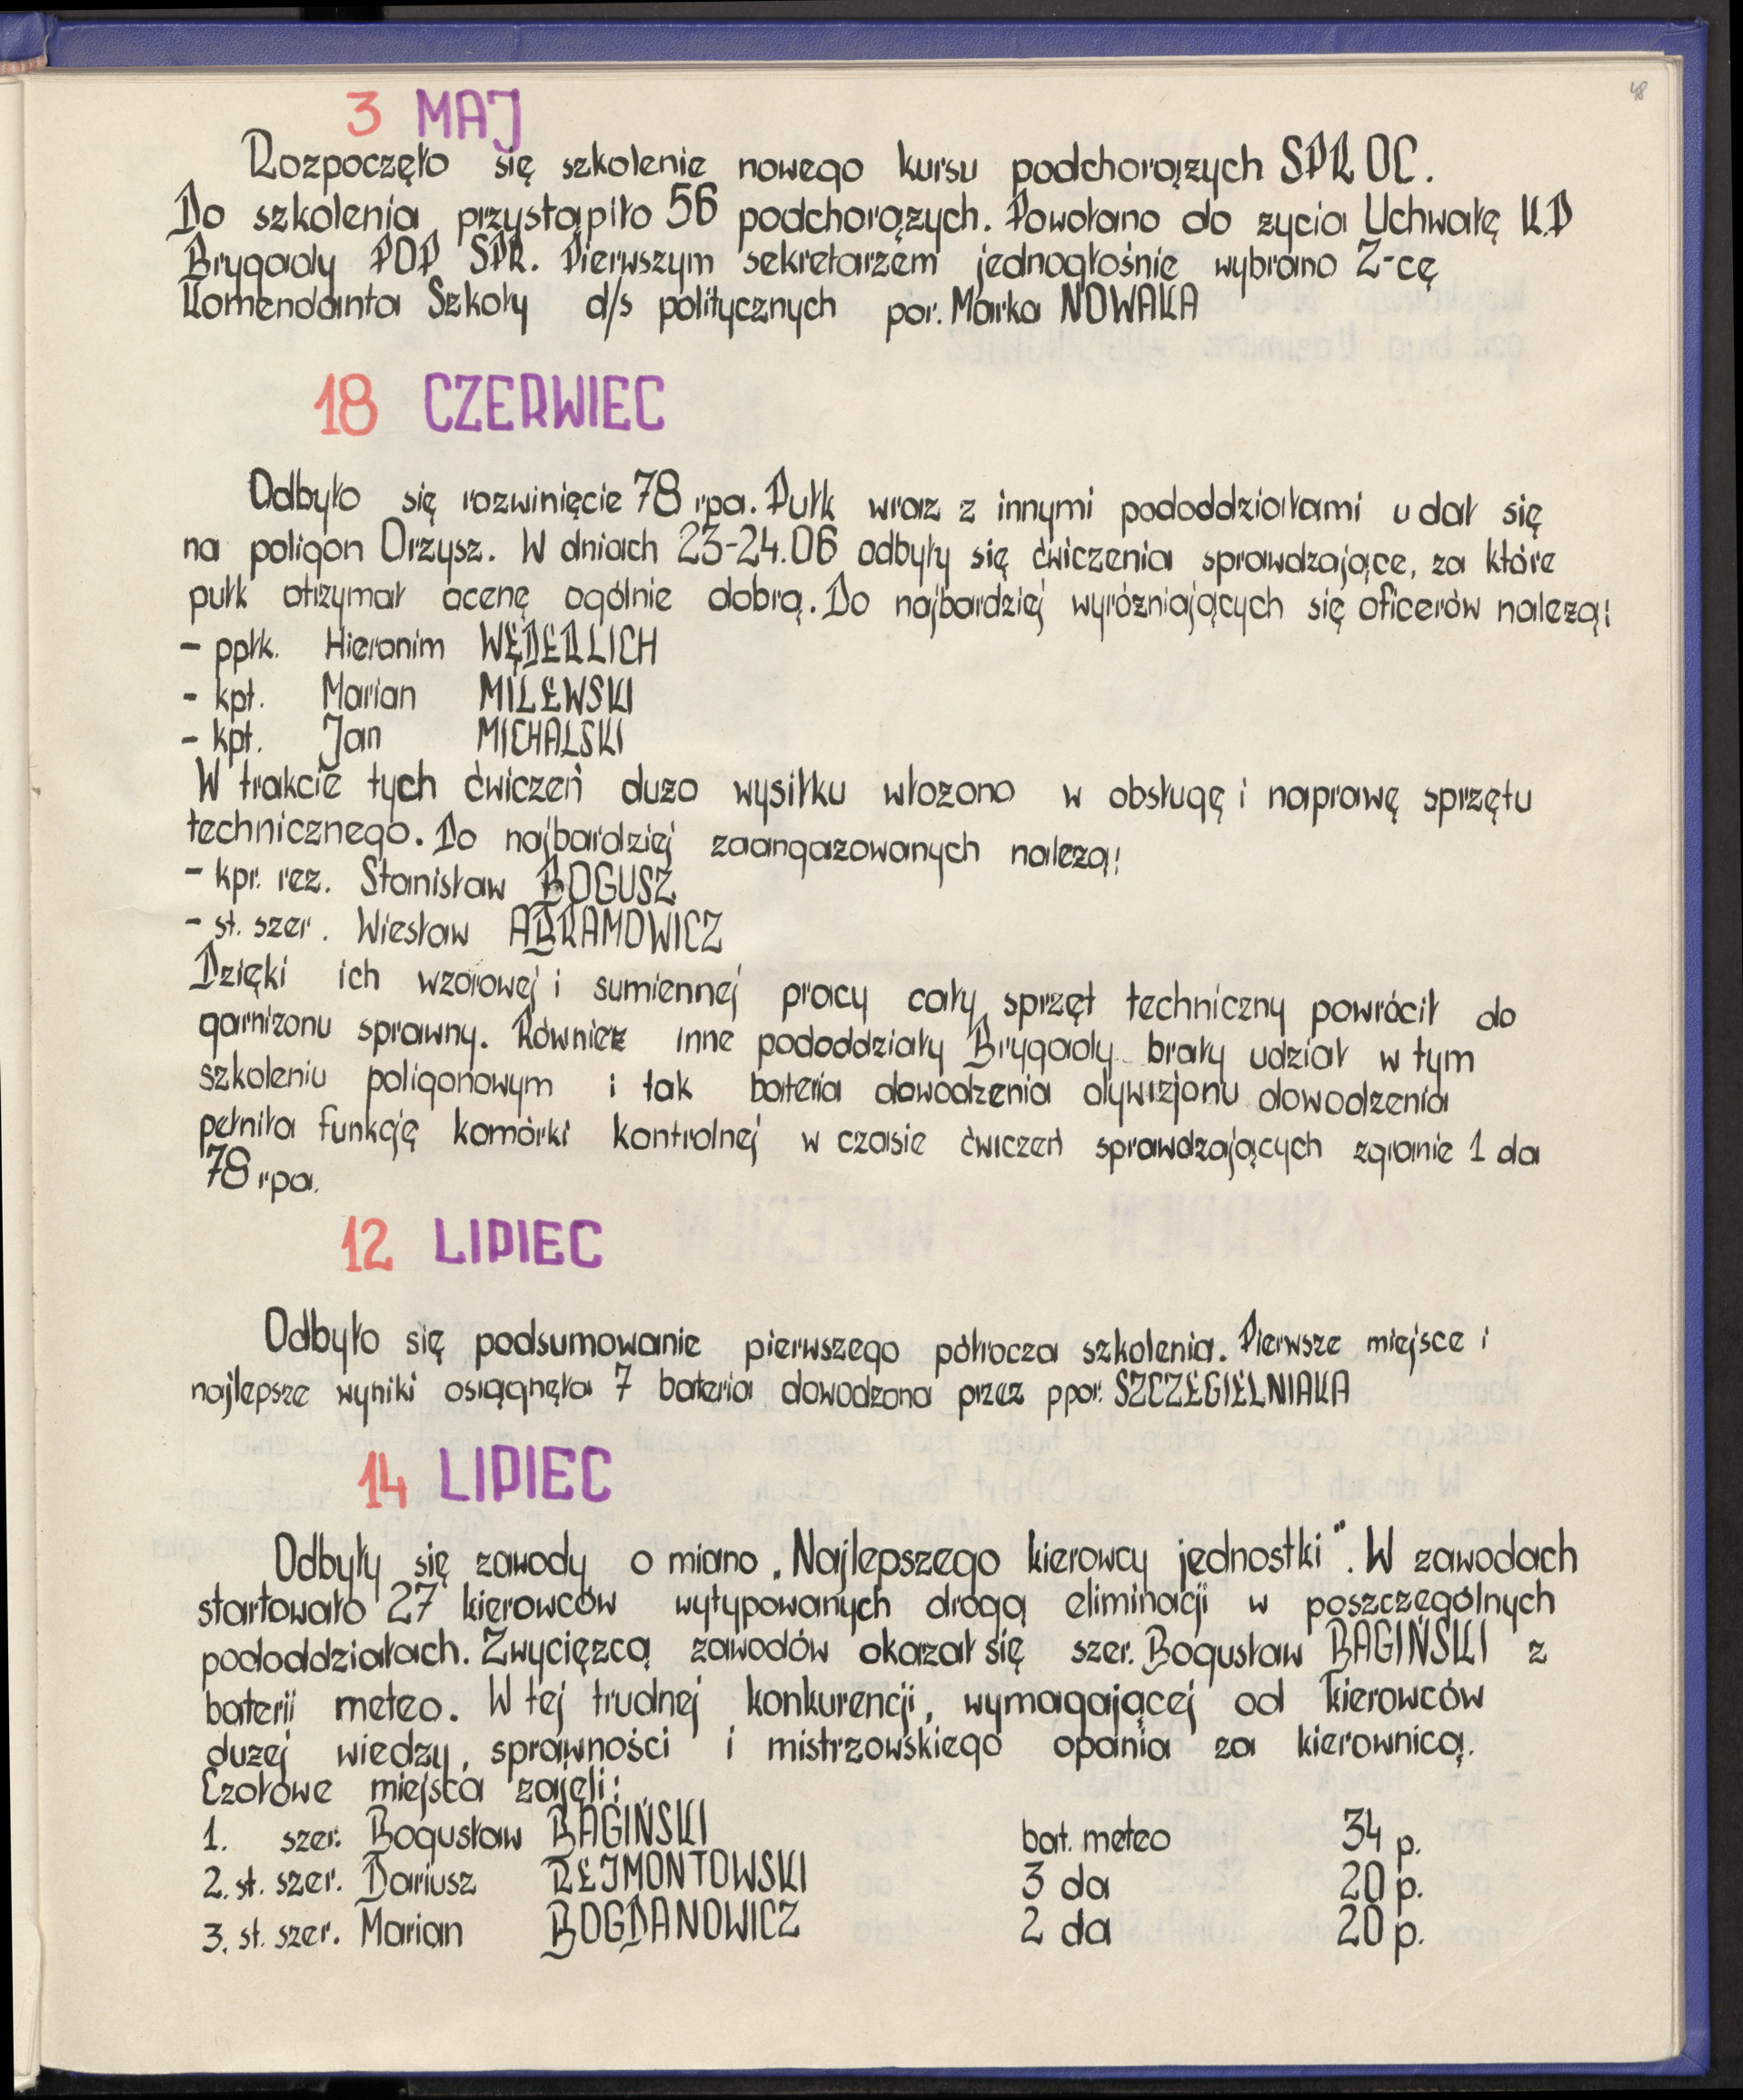 48
3 MAJ
Rozpoczęło się szkolenie nowego kursu podchorążych SPR OC.
Do szkolenia przystąpiło 56 podchorązych. Powołano do zycia Uchwałę K.P
Brygady POP SPR. Pierwszym sekretarzem jednogłośnie wybrano Z-cę
Komendanta Szkoły d/s politycznych por. Marka NOWAKA
18 CZERWIEC
Odbyło się rozwinięcie 78 rpa. Pułk wraz z innymi pododdziałami udał się
na poligon Orzysz. W dniach 23-24.06 odbyły się ćwiczenia sprawdzające, za które
pułk otrzymał ocenę ogólnie dobrą. Do najbardziej wyrózniających się oficerów nalezą:
- ppłk. Hieronim WĘDERLICH
- kpt. Marian MILEWSKI
- kpt. Jan MICHALSKI
W trakcie tych ćwiczeń duzo wysiłku włozono w obsługę i naprawę sprzętu
technicznego. Do najbardziej zaangazowanych nalezą:
- kpr. rez. Stanisław BOGUSZ
- st. szer. Wiesław ABRAMOWICZ
Dzięki ich wzorowej i sumiennej pracy cały sprzęt techniczny powrócił do
garnizonu sprawny. Równiez inne pododdziały Brygady brały udział w tym
szkoleniu poligonowym i tak bateria dowodzenia dywizjonu dowodzenia
pełniła funkcję komórki kontrolnej w czasie ćwiczeń sprawdzających zgranie 1 da
78 rpa.
12 LIPIEC
Odbyło się podsumowanie pierwszego półrocza szkolenia. Pierwsze miejsce i
najlepsze wyniki osiągnęła 7 bateria dowodzona przez ppor. SZCZEGIELNIAKA
14 LIPIEC
Odbyły się zawody o miano „Najlepszego kierowcy jednostki". W zawodach
startowało 27 kierowców wytypowanych drogą eliminacji w poszczególnych
pododdziałach. Zwycięzcą zawodów okazał się szer. Bogusław BAGIŃSKI z
baterii meteo. W tej trudnej konkurencji, wymagającej od kierowców
duzej wiedzy, sprawności i mistrzowskiego opania za kierownicą.
Czołowe miejsca zajęli:
1. szer. Bogusław BAGIŃSKI bat. meteo 34 p.
2. st. szer. Dariusz REJMONTOWSKI 3 da 20 p.
3. st. szer. Marian BOGDANOWICZ 2 da 20 p.